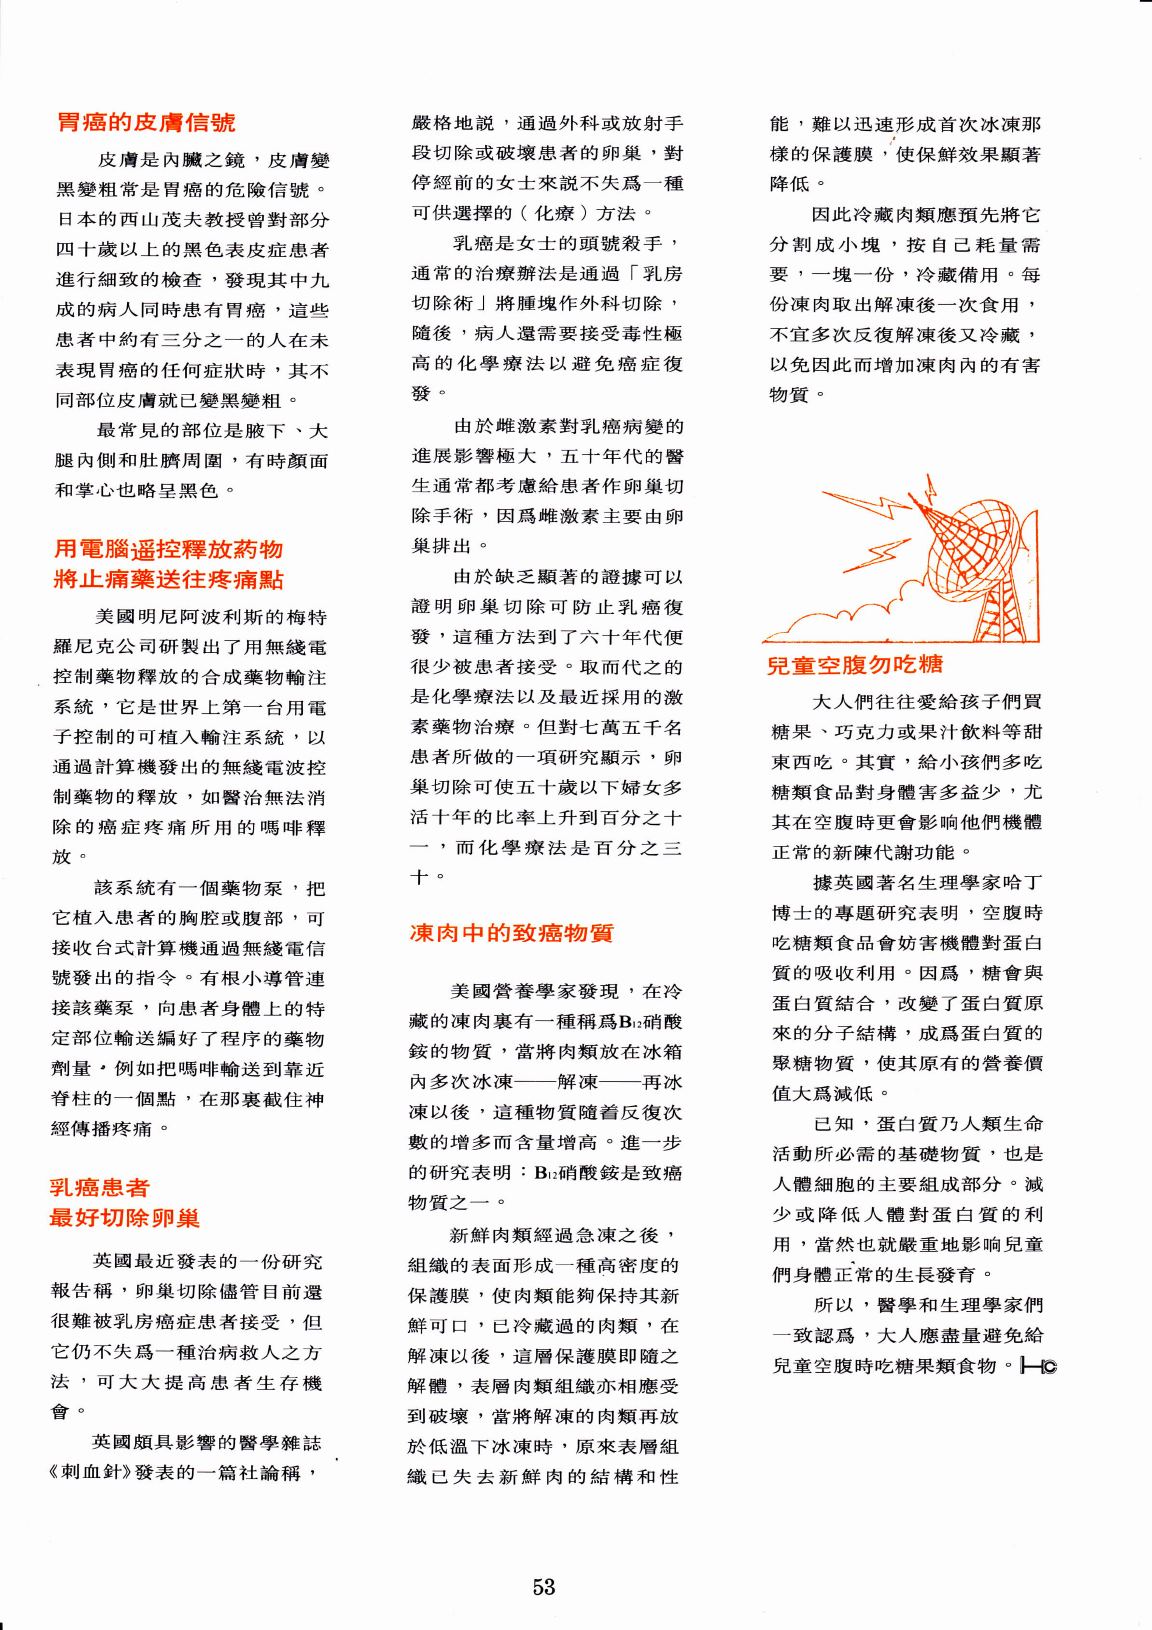 胃癌的皮膚信號
皮膚是內臟之鏡，皮膚變
黑變粗常是胃癌的危險信號。
日本的西山茂夫教授曾對部分
四十歲以上的黑色表皮症患者
進行細致的檢查，發現其中九
成的病人同時患有胃癌，這些
患者中約有三分之一的人在未
表現胃癌的任何症狀時，其不
同部位皮膚就已變黑變粗。
最常見的部位是腋下、大
腿內側和肚臍周圍，有時顏面
和掌心也略呈黑色。
用電腦遥控釋放葯物
將止痛藥送往疼痛點
美國明尼阿波利斯的梅特
羅尼克公司研製出了用無綫電
控制藥物釋放的合成藥物輸注
系統，它是世界上第一台用電
子控制的可植入輸注系統，以
通過計算機發出的無綫電波控
制藥物的釋放，如醫治無法消
除的癌症疼痛所用的嗎啡釋
放。
該系統有一個藥物泵，把
它植入患者的胸腔或腹部，可
接收台式計算機通過無綫電信
號發出的指令。有根小導管連
接該藥泵，向患者身體上的特
定部位輸送編好了程序的藥物
劑量，例如把嗎啡輸送到靠近
脊柱的一個點，在那裏截住神
經傳播疼痛。
乳癌患者
最好切除卵巢
英國最近發表的一份研究
報告稱，卵巢切除儘管目前還
很難被乳房癌症患者接受，但
它仍不失爲一種治病救人之方
法，可大大提高患者生存機
會。
英國頗具影響的醫學雜誌
《刺血針》發表的一篇社論稱，
嚴格地説，通過外科或放射手
段切除或破壞患者的卵巢，對
停經前的女士來説不失爲一種
可供選擇的（化療）方法。
乳癌是女士的頭號殺手，
通常的治療辦法是通過「乳房
切除術」將腫塊作外科切除，
隨後，病人還需要接受毒性極
高的化學療法以避免癌症復
發。
由於雌激素對乳癌病變的
進展影響極大，五十年代的醫
生通常都考慮給患者作卵巢切
除手術，因爲雌激素主要由卵
巢排出。
由於缺乏顯著的證據可以
證明卵巢切除可防止乳癌復
發，這種方法到了六十年代便
很少被患者接受。取而代之的
是化學療法以及最近採用的激
素藥物治療。但對七萬五千名
患者所做的一項研究顯示，卵
巢切除可使五十歲以下婦女多
活十年的比率上升到百分之十
一，而化學療法是百分之三
十。
凍肉中的致癌物質
美國營養學家發現，在冷
藏的凍肉裏有一種稱爲B₁₂硝酸
銨的物質，當將肉類放在冰箱
內多次冰凍——解凍——再冰
凍以後，這種物質隨着反復次
數的增多而含量增高。進一步
的研究表明：B₁₂硝酸銨是致癌
物質之一。
新鮮肉類經過急凍之後，
組織的表面形成一種高密度的
保護膜，使肉類能夠保持其新
鮮可口，已冷藏過的肉類，在
解凍以後，這層保護膜即隨之
解體，表層肉類組織亦相應受
到破壞，當將解凍的肉類再放
於低溫下冰凍時，原來表層組
織已失去新鮮肉的結構和性
能，難以迅速形成首次冰凍那
樣的保護膜，使保鮮效果顯著
降低。
因此冷藏肉類應預先將它
分割成小塊，按自己耗量需
要，一塊一份，冷藏備用。每
份凍肉取出解凍後一次食用，
不宜多次反復解凍後又冷藏，
以免因此而增加凍肉內的有害
物質。
兒童空腹勿吃糖
大人們往往愛給孩子們買
糖果、巧克力或果汁飲料等甜
東西吃。其實，給小孩們多吃
糖類食品對身體害多益少，尤
其在空腹時更會影响他們機體
正常的新陳代謝功能。
據英國著名生理學家哈丁
博士的專題研究表明，空腹時
吃糖類食品會妨害機體對蛋白
質的吸收利用。因爲，糖會與
蛋白質結合，改變了蛋白質原
來的分子結構，成爲蛋白質的
聚糖物質，使其原有的營養價
值大爲減低。
已知，蛋白質乃人類生命
活動所必需的基礎物質，也是
人體細胞的主要組成部分。減
少或降低人體對蛋白質的利
用，當然也就嚴重地影响兒童
們身體正常的生長發育。
所以，醫學和生理學家們
一致認爲，大人應盡量避免給
兒童空腹時吃糖果類食物。
53